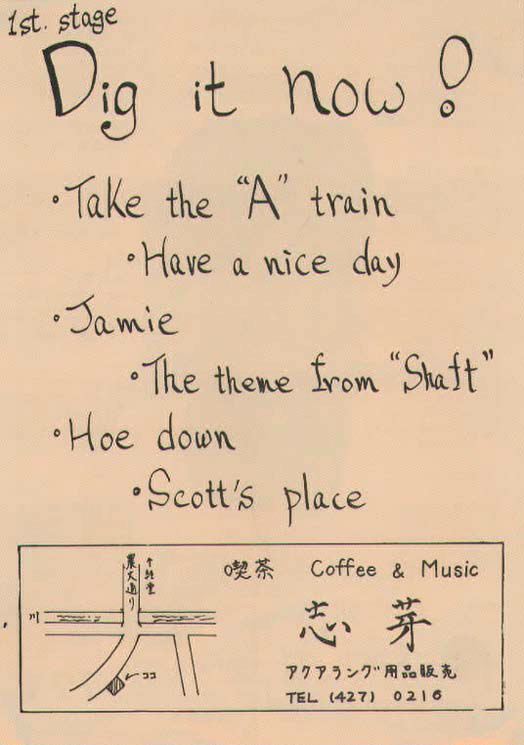 1st. stage
Dig it now!
・Take the "A" train
・Have a nice day
・Jamie
・The theme from "Shaft"
・Hoe down
・Scott's place
農大通り
↑経堂
川
←ココ
喫茶 Coffee & Music
志芽
アクアラング用品販売
TEL (427) 0216